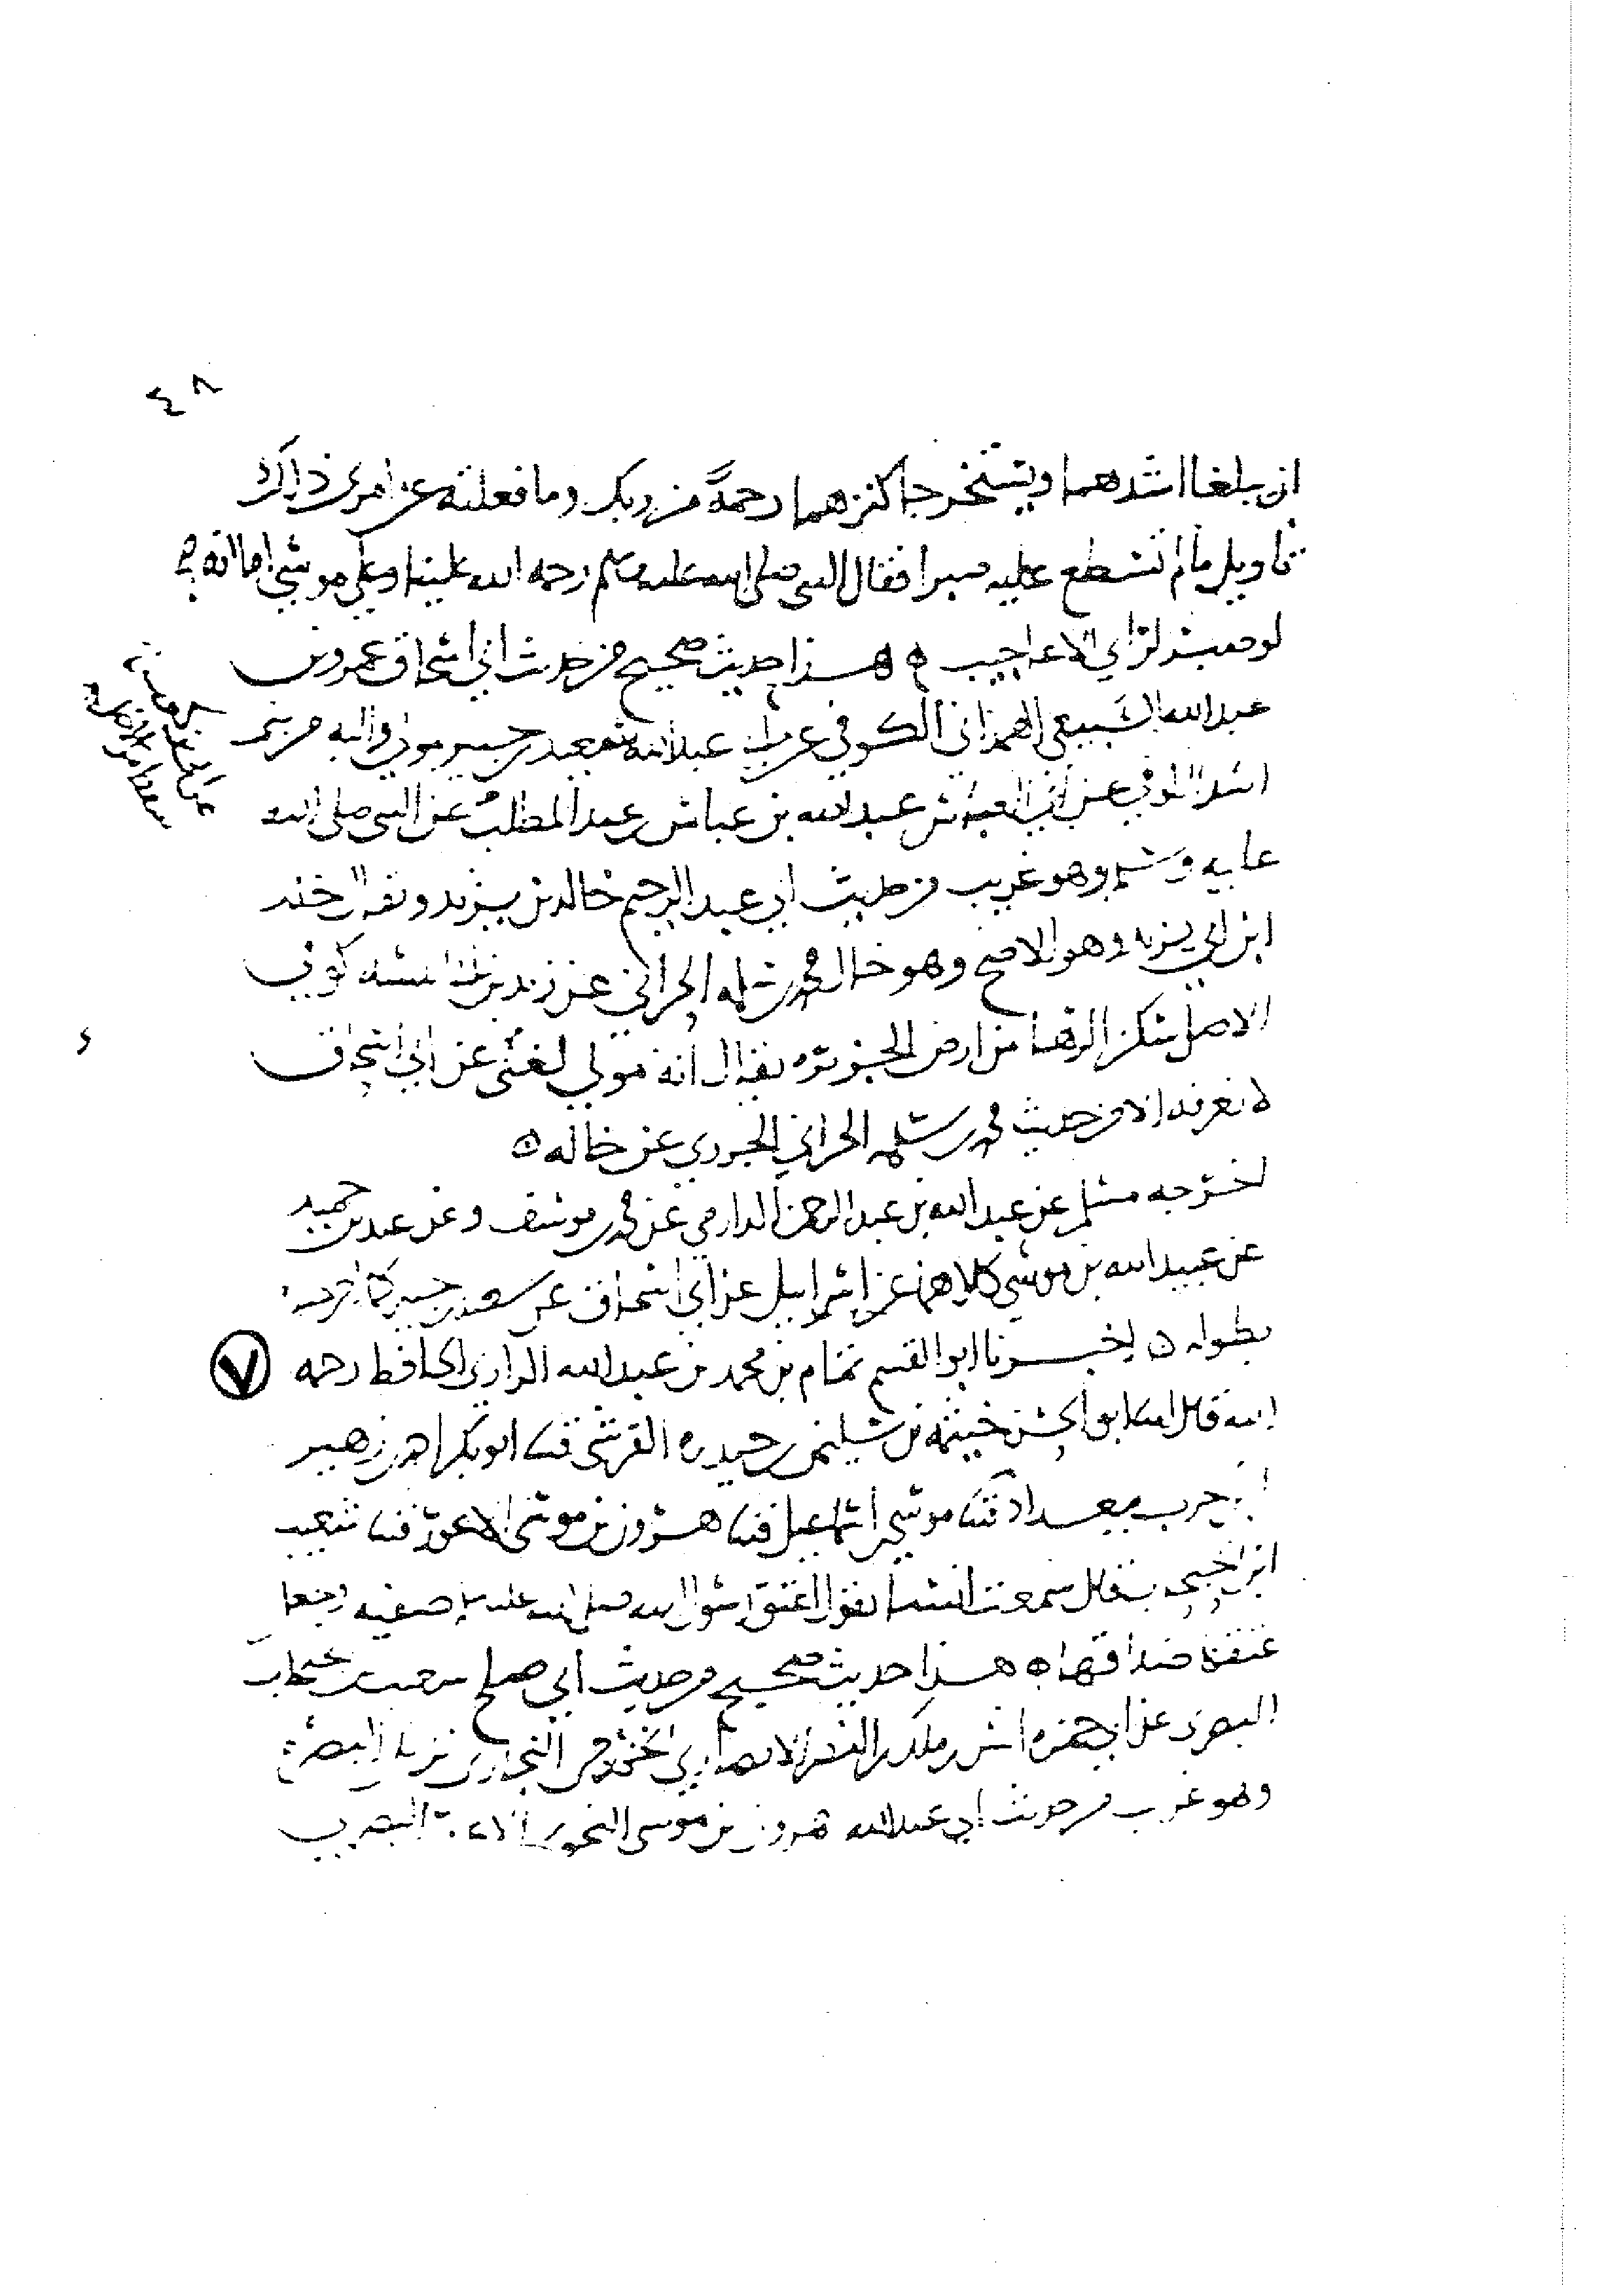 ٤٨
ان يبلغا اشدهما ويستخرجا كنزهما رحمة من ربك وما فعلته عن امري ذلك
تاويل ما لم تسطع عليه صبرا فقال النبي صلى الله عليه وسلم رحمه الله علينا وعلى موسى اما انه
لو صبر لراي الاعاجيب ه هذا حديث صحيح من حديث ابي اسحاق عمرو بن
عبد الله السبيعي الهمداني الكوفي عن ابي عبد الله سعيد بن جبير مولى والبه من بني
اسد الكوفي عن ابي العباس عبد الله بن عباس بن عبد المطلب عن النبي صلى الله
عليه وسلم وهو غريب من حديث ابي عبد الرحيم خالد بن يزيد ويقال خلد
ابن ابي يزيد وهو الاصح وهو خال محمد بن سلمه الحراني عن زيد بن ابي انيسه كوفي
الاصل سكن الرها من ارض الجزيره يقال انه مولى لغني عن ابي اسحاق
لا نعرفه الا من حديث محمد بن سلمه الحراني الجزري عن خاله ه
اخرجه مسلم عن عبد الله بن عبد الرحمن الدارمي عن محمد بن يوسف وعن عبد بن حميد
عن عبيد الله بن موسى كلاهما عن اسرائيل عن ابي اسحاق عن سعيد بن جبير كما اخرجه
بطوله ه اخبرنا ابو القسم تمام بن محمد بن عبد الله الرازي الحافظ رحمه
٧
الله قال انبا ابو الحسن خيثمه بن سليمن بن حيدره القرشي قثنا ابو بكر احمد بن زهير
ابن حرب ببغداد قثنا موسى بن اسماعيل قثنا هرون بن موسى الاعور قثنا شعيب
ابن الحبحاب قال سمعت انسا يقول اعتق رسول الله صلى الله عليه وسلم صفيه وجعل
عتقها صداقها ه هذا حديث صحيح من حديث ابي صلح شعيب بن الحبحاب
البصري عن ابي حمزه انس بن ملك بن النضر الانصاري الخزرجي النجاري نزيل البصره
وهو غريب من حديث ابي عبد الله هرون بن موسى النحوي الاعور البصري